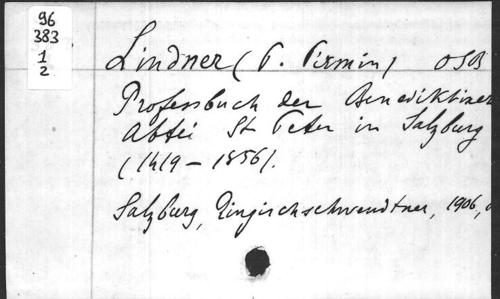 96
383
1
2
Lindner (P. Pirmin) OSB
Professbuch der Benediktiner
Abtei St Peter in Salzburg
(1419 - 1856).
Salzburg, 1906,